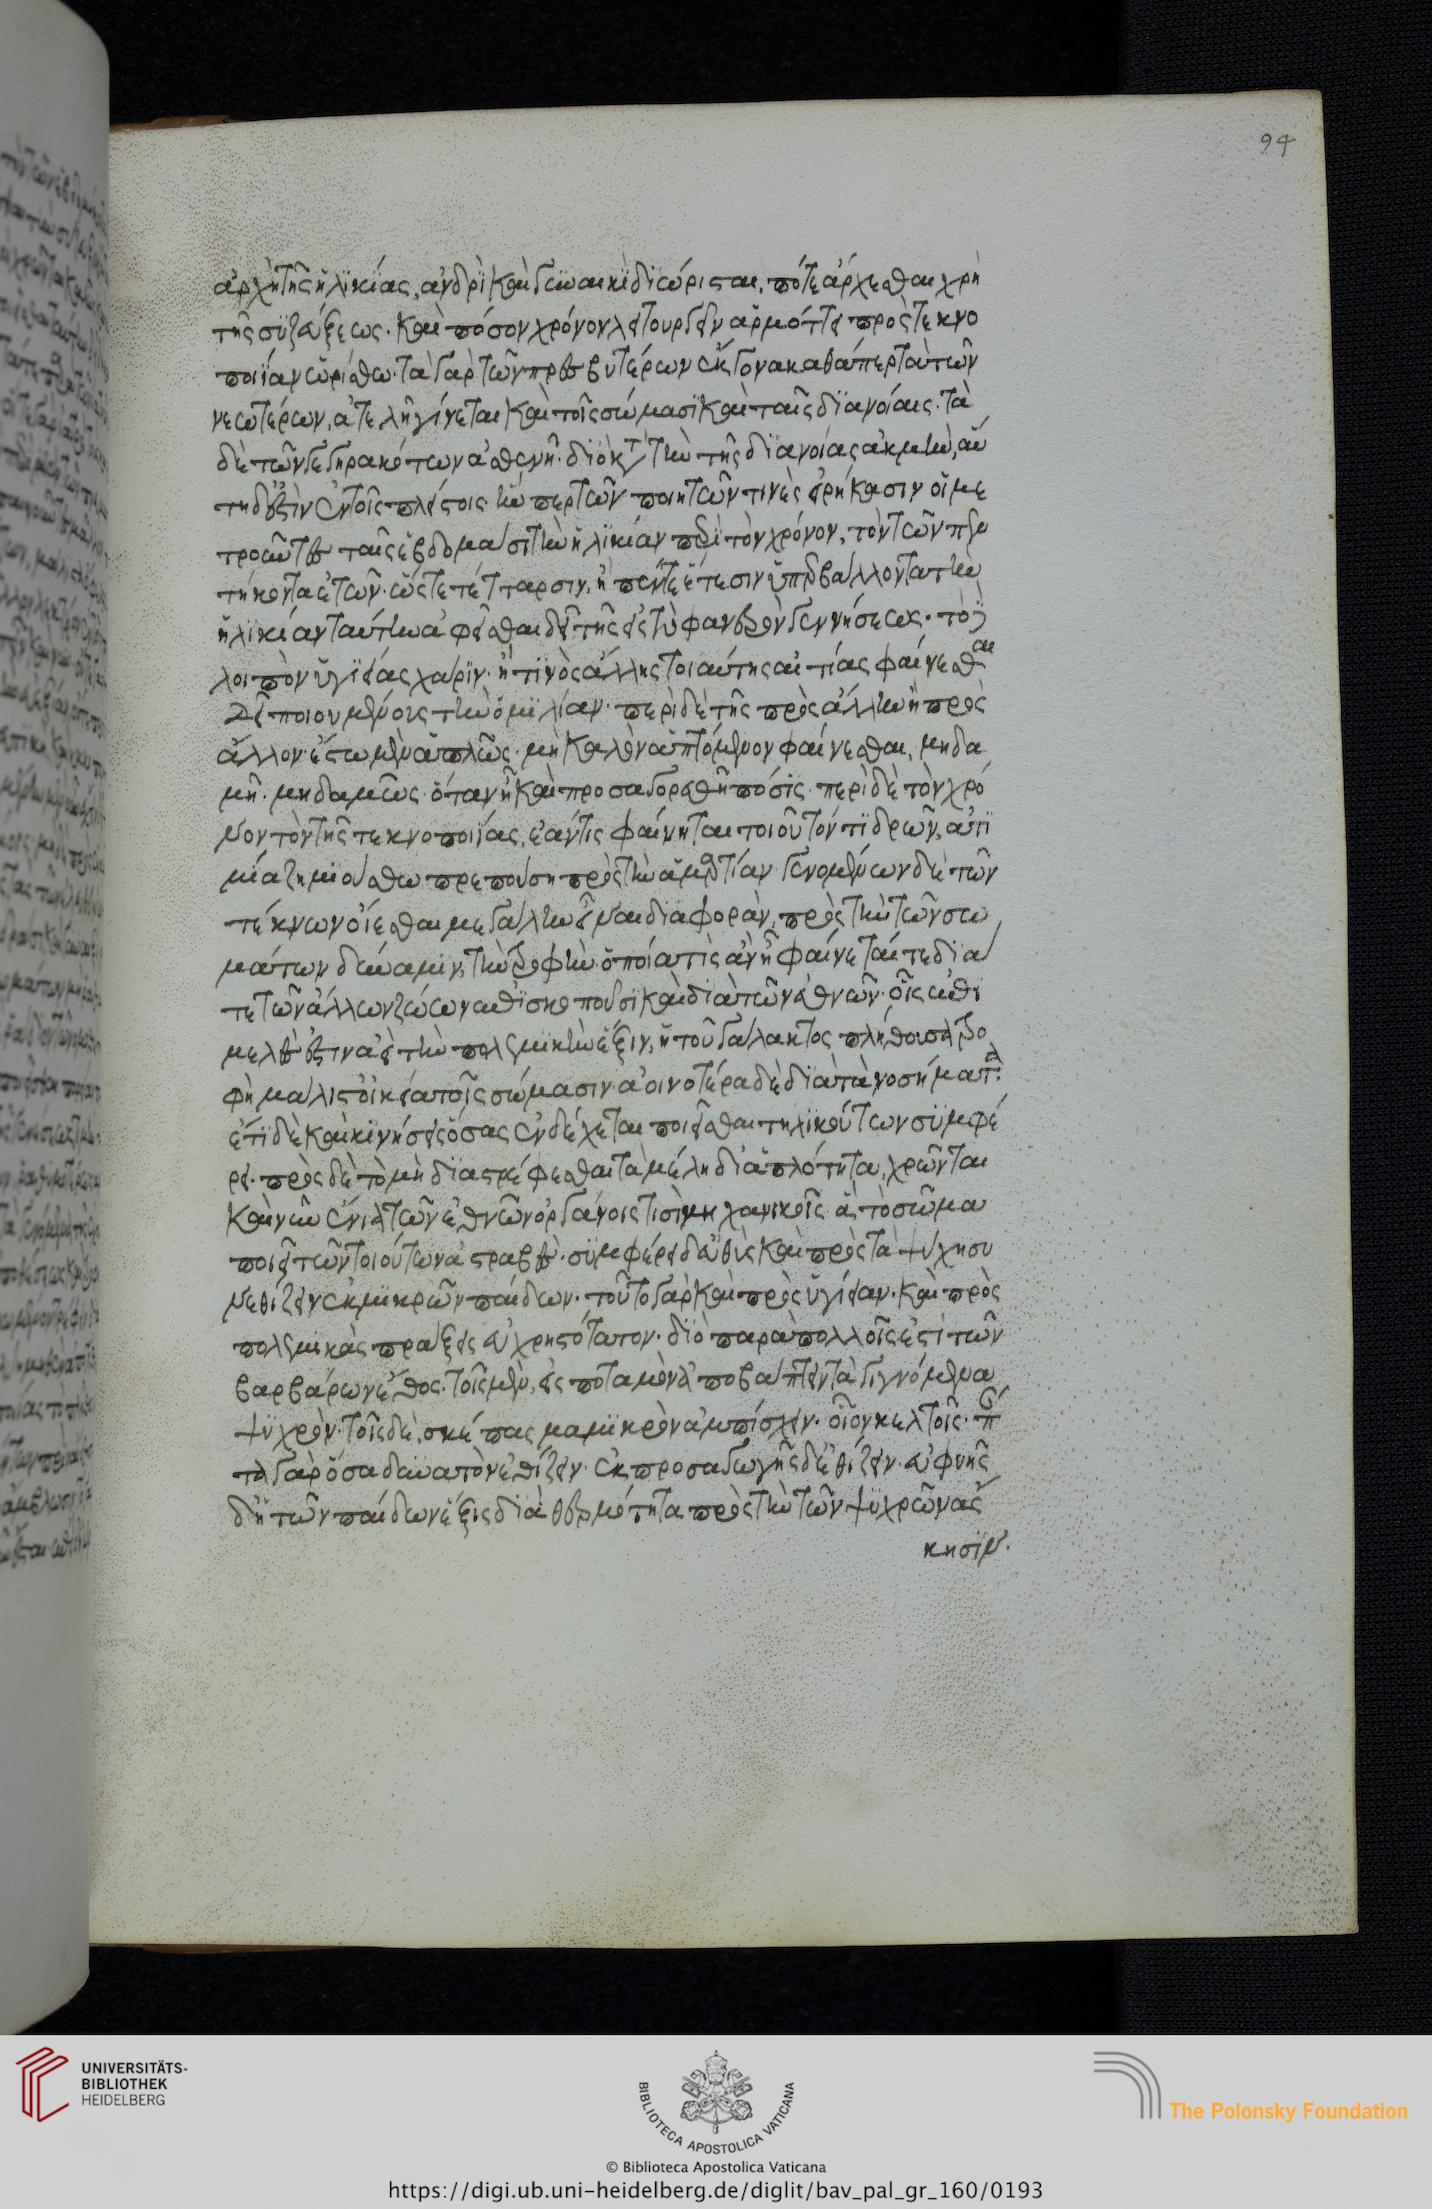 94
ἀρχὴ τῆς ἡλικίας, ἀνδρὶ καὶ γυναικὶ διώρισται, πότε ἄρχεσθαι χρὴ
τῆς συζεύξεως. καὶ πόσον χρόνον λειτουργεῖν ἁρμόττει πρὸς τεκνο
ποιίαν ὡρίσθω. τὰ γὰρ τῶν πρεσβυτέρων ἔκγονα καθάπερ τὰ τῶν
νεωτέρων, ἀτελῆ γίνεται καὶ τοῖς σώμασι καὶ ταῖς διανοίαις. τὰ
δὲ τῶν γεγηρακότων ἀσθενῆ. διὸ κτ τὴν τῆς διανοίας ἀκμὴν, αὕ
τη δ' ἐστὶν ἐν τοῖς πλείστοις ἥν περ τῶν ποιητῶν τινὲς εἰρήκασιν οἱ με
τροῦντες ταῖς ἑβδομάσι τὴν ἡλικίαν περὶ τὸν χρόνον, τὸν τῶν πεν
τήκοντα ἐτῶν. ὥστε τέτταρσιν, ἢ πέντε ἔτεσιν ὑπερβάλλοντα τὴν
ἡλικίαν ταύτην ἀφεῖσθαι δεῖ τῆς εἰς τὸ φανερὸν γεννήσεως. τὸ δὲ
λοιπὸν ὑγιείας χάριν. ἤ τινος ἄλλης τοιαύτης αἰτίας φαίνεσθαι
δεῖ ποιουμένους τὴν ὁμιλίαν. περὶ δὲ τῆς πρὸς ἄλλην ἢ πρὸς
ἄλλον. ἔστω μὲν ἁπλῶς. μὴ καλὸν ἁπτόμενον φαίνεσθαι, μηδα
μῆ. μηδαμῶς. ὅταν ᾖ καὶ προσαγορευθῆ πόσις. περὶ δὲ τὸν χρό
νον τὸν τῆς τεκνοποιίας, ἐάν τις φαίνηται τοιοῦτόν τι δρῶν, ἀτι
μία ζημιούσθω πρεπούση πρὸς τὴν ἁμαρτίαν. γενομένων δὲ τῶν
τέκνων οἴεσθαι μεγάλην εἶναι διαφορὰν, πρὸς τὴν τῶν σω
μάτων δύναμιν, τὴν τροφὴν. ὁποία τις ἂν ᾖ φαίνεταί τε διά
τε τῶν ἄλλων ζώων ἐπισκοποῦσι καὶ διὰ τῶν ἐθνῶν. οἷς ἐπι
μελές ἐστιν ἄγειν τὴν πολεμικὴν ἕξιν, ἡ τοῦ γάλακτος πλήθουσα τρο
φὴ μάλιστ' οἰκεία τοῖς σώμασιν. ἀοινοτέρα δὲ διὰ τὰ νοσήματα.
ἔτι δὲ καὶ κινήσεις ὅσας ἐνδέχεται ποιεῖσθαι τηλικούτων συμφέ
ρει. πρὸς δὲ τὸ μὴ διαστρέφεσθαι τὰ μέλη δι' ἁπλότητα, χρῶνται
καὶ νῦν ἔνια τῶν ἐθνῶν ὀργάνοις τισὶ μηχανικοῖς ἃ τὸ σῶμα
ποιεῖ τῶν τοιούτων ἀστραβές. συμφέρει δ' εὐθὺς καὶ πρὸς τὰ ψύχη συ
νεθίζειν ἐκ μικρῶν παίδων. τοῦτο γὰρ καὶ πρὸς ὑγίειαν. καὶ πρὸς
πολεμικὰς πράξεις εὐχρηστότατον. διὸ παρὰ πολλοῖς ἐστὶ τῶν
βαρβάρων ἔθος. τοῖς μὲν, εἰς ποταμὸν ἀποβάπτειν τὰ γιγνόμενα
ψυχρὸν. τοῖς δὲ, σκέπασμα μικρὸν ἀμπίσχειν. οἷον κελτοῖς. πάν
τα γὰρ ὅσα δυνατὸν ἐθίζειν. ἐκ προσαγωγῆς δ' ἐθίζειν. εὐφυὴς
δ' ἡ τῶν παίδων ἕξις διὰ θερμότητα πρὸς τὴν τῶν ψυχρῶν ἄσ
κησιν.
UNIVERSITÄTS-
BIBLIOTHEK
HEIDELBERG
BIBLIOTECA APOSTOLICA VATICANA
© Biblioteca Apostolica Vaticana
The Polonsky Foundation
https://digi.ub.uni-heidelberg.de/diglit/bav_pal_gr_160/0193